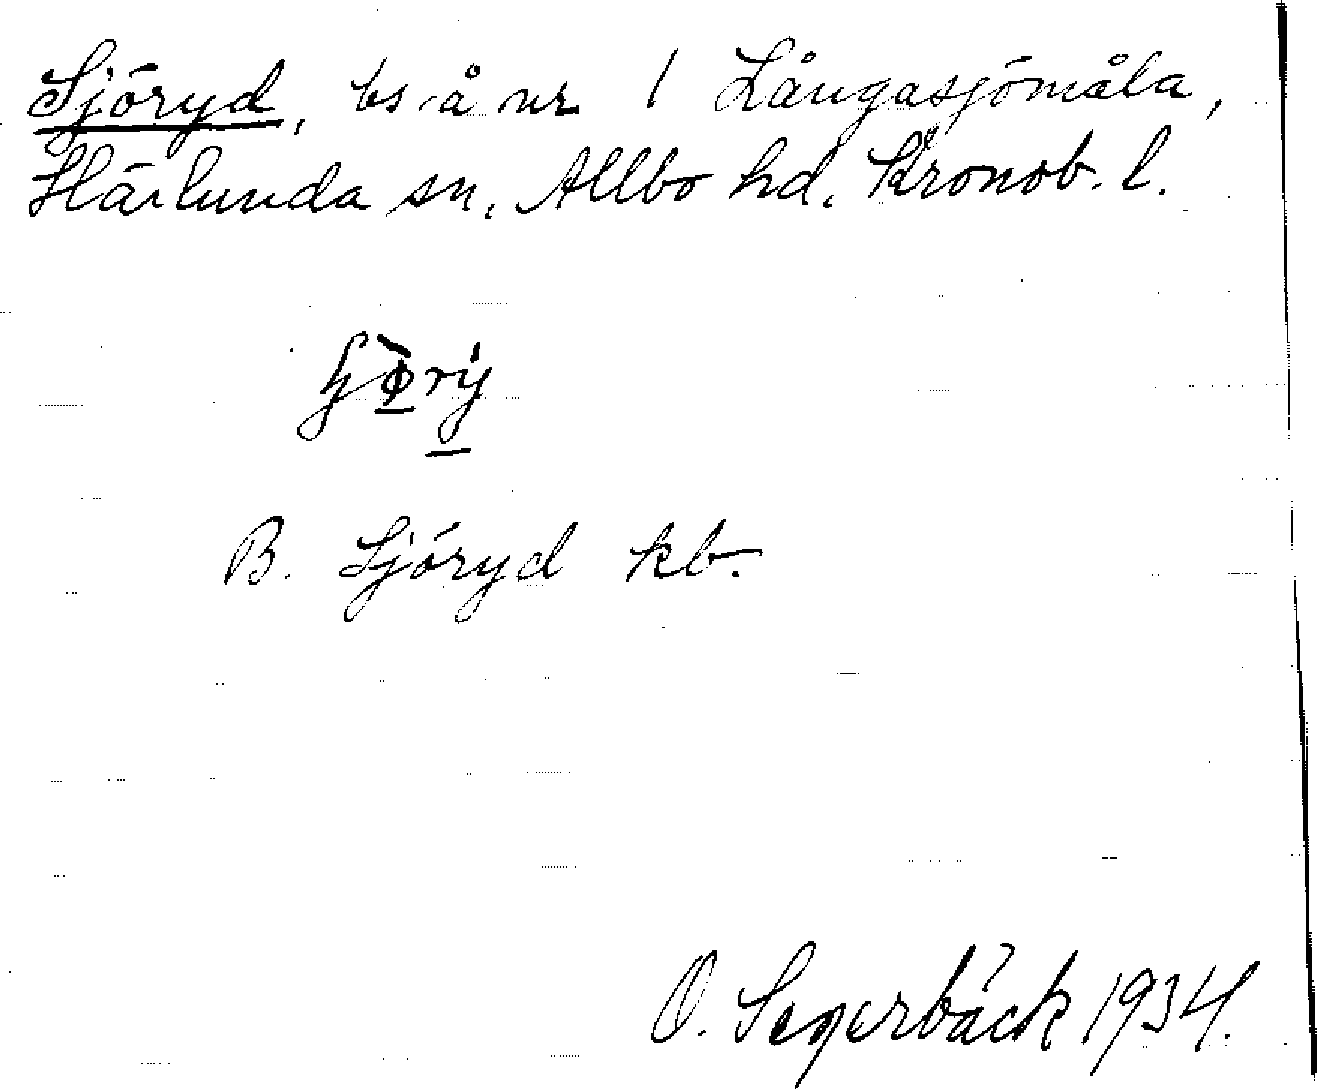 Sjöryd, bs. å nr 1 Långasjömåla,
Härlunda sn, Allbo hd, Kronob. l.
B. Sjöryd kb.
O. Segerbäck 1934.